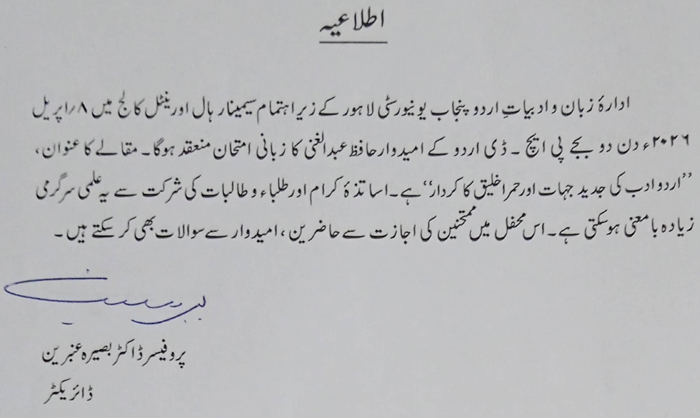 اطلاعیہ
ادارۂ زبان و ادبیاتِ اردو پنجاب یونیورسٹی لاہور کے زیرِ اہتمام سیمینار ہال اورینٹل کالج میں ۸/اپریل
۲۰۲۶ء دن دو بجے پی ایچ ۔ ڈی اردو کے امیدوار حافظ عبدالغنی کا زبانی امتحان منعقد ہوگا۔ مقالے کا عنوان،
”اردو ادب کی جدید جہات اور حمرا خلیق کا کردار“ ہے۔ اساتذۂ کرام اور طلباء و طالبات کی شرکت سے یہ علمی سرگرمی
زیادہ بامعنی ہوسکتی ہے۔ اس محفل میں ممتحنین کی اجازت سے حاضرین، امیدوار سے سوالات بھی کر سکتے ہیں۔
پروفیسر ڈاکٹر بصیرہ عنبرین
ڈائریکٹر